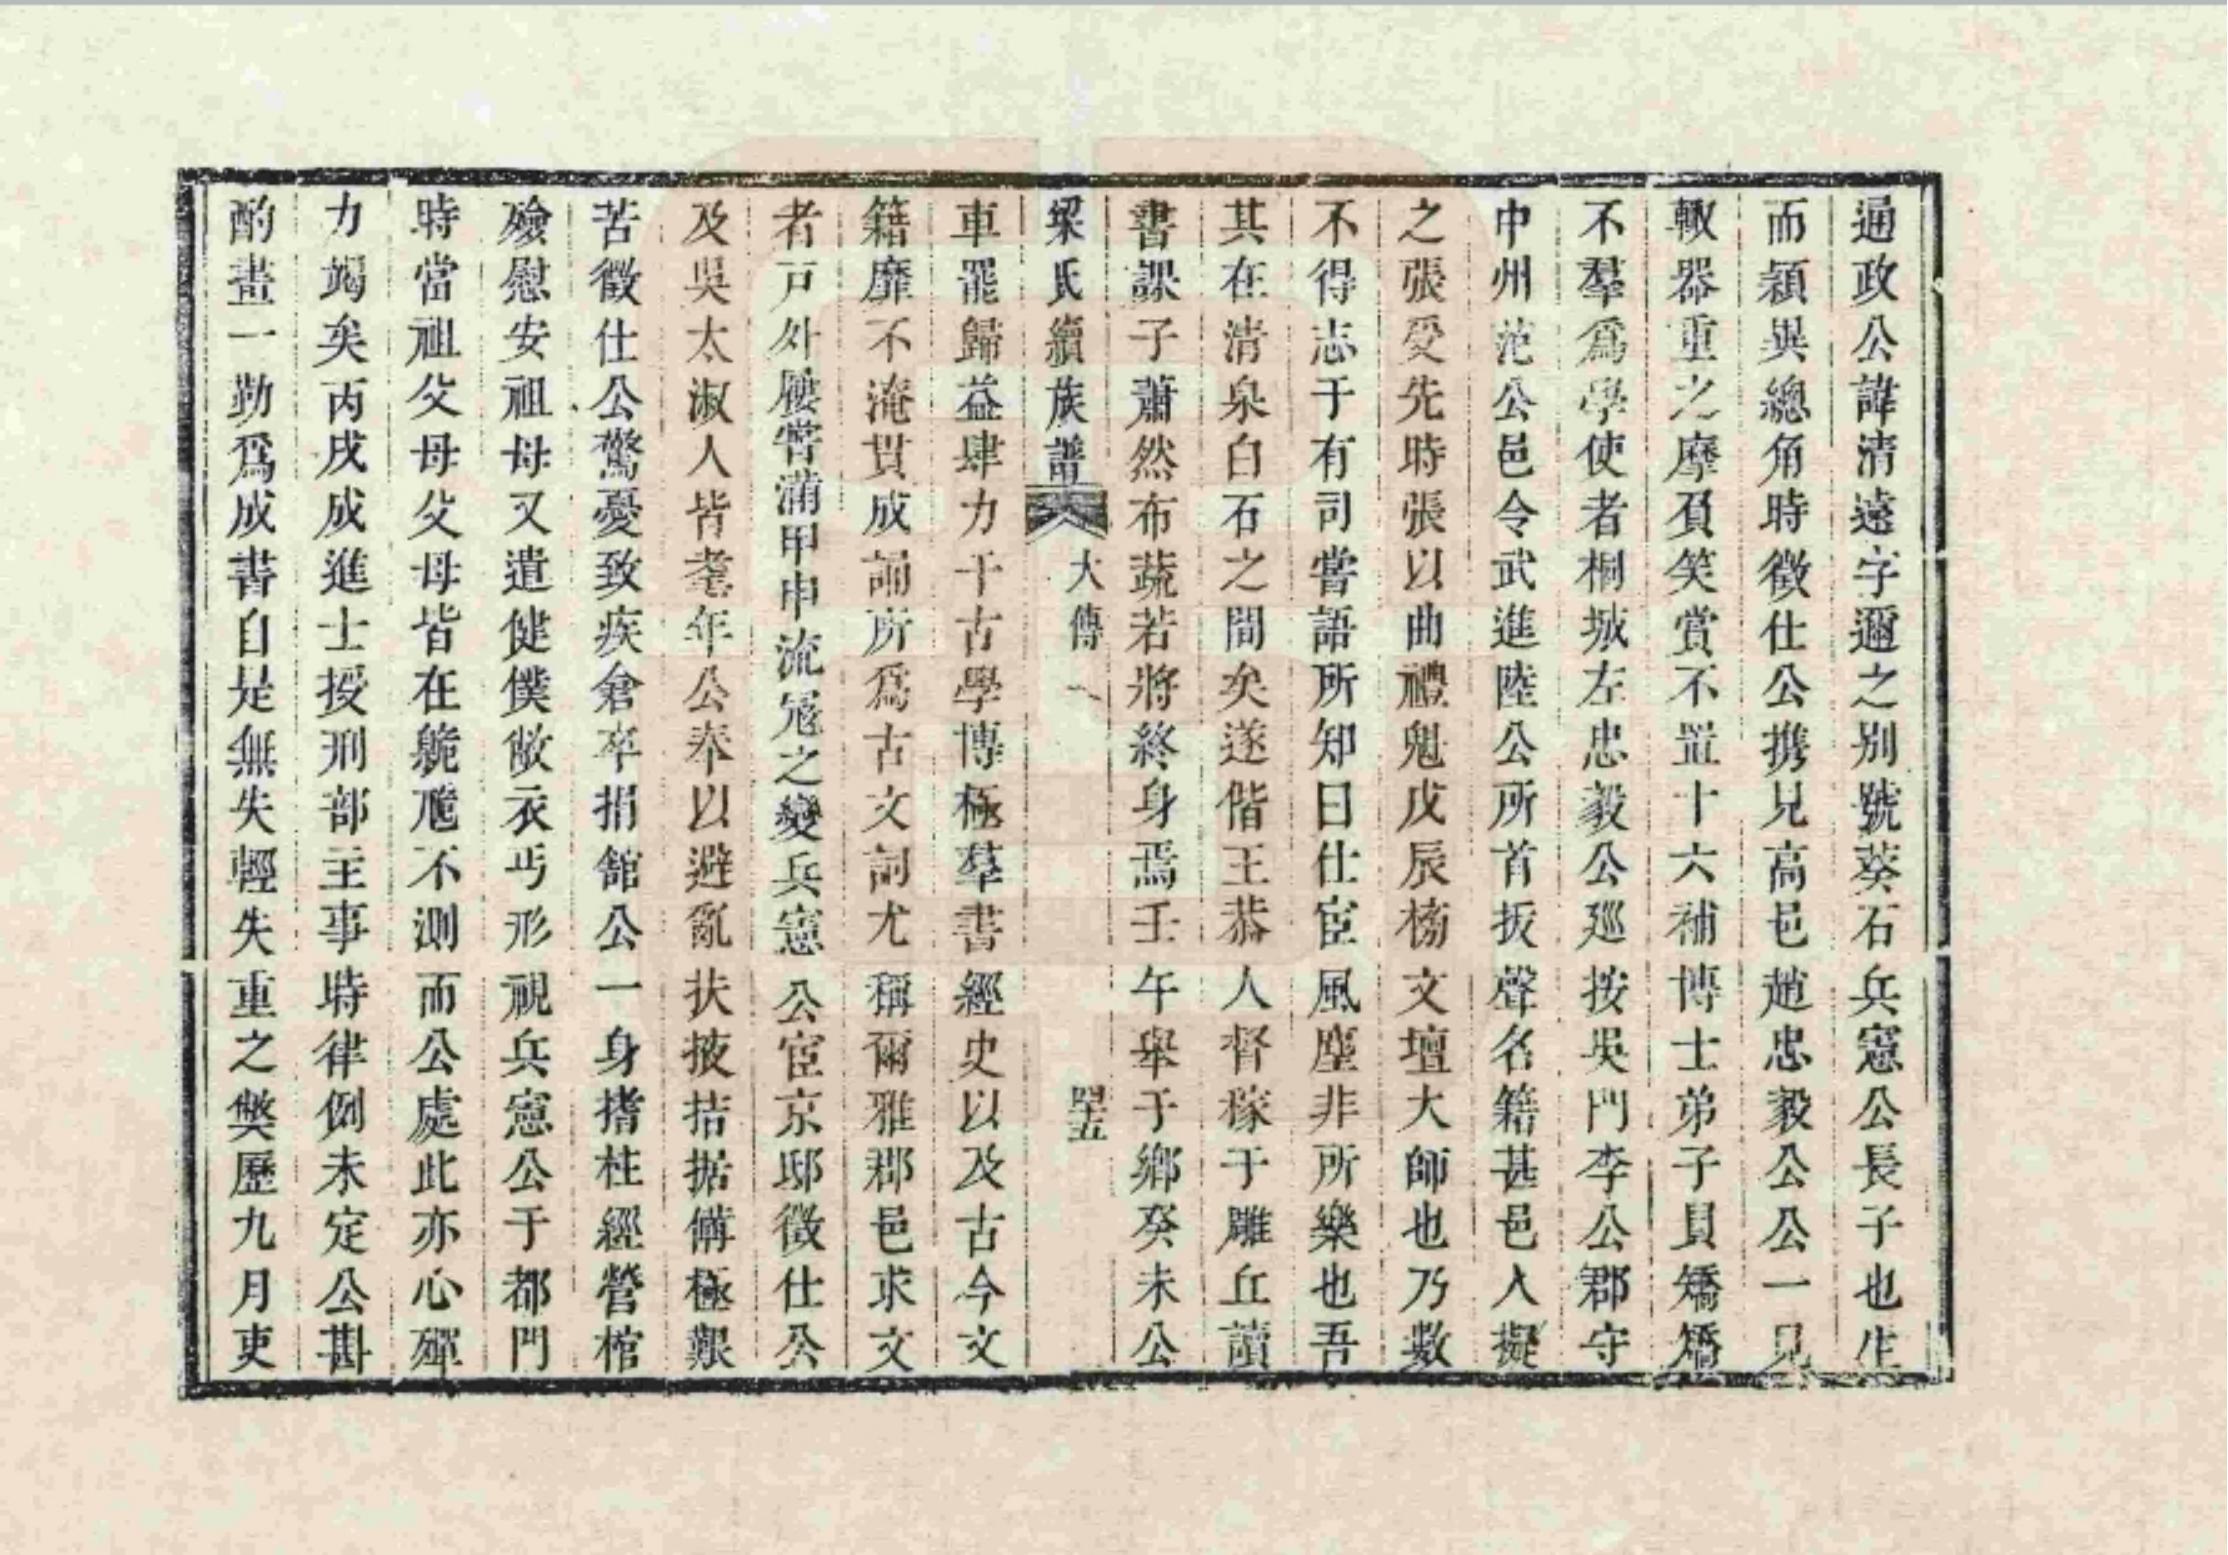 通政公諱清遠字邇之別號葵石兵憲公長子也生
而穎異總角時徵仕公携見高邑趙忠毅公公一見
輙器重之摩頂笑賞不置十六補博士弟子員矯矯
不羣爲學使者桐城左忠毅公廵按吳門李公郡守
中州范公邑令武進陸公所首拔聲名籍甚邑人擬
之張受先時張以曲禮魁戊辰榜文壇大師也乃數
不得志于有司嘗語所知曰仕宦風塵非所樂也吾
其在清泉白石之間矣遂偕王恭人督稼于雕丘讀
書課子蕭然布蔬若將終身焉壬午舉于鄉癸未公
梁氏續族譜 大傳一 四十五
車罷歸益肆力千古學博極羣書經史以及古今文
籍靡不淹貫成誦所爲古文詞尤稱爾雅郡邑求文
者戸外屨嘗滿甲申流冦之變兵憲公宦京邸徵仕公
及吳太淑人皆耄年公奉以避亂扶掖拮据備極艱
苦徵仕公驚憂致疾倉卒捐舘公一身搘柱經營棺
殮慰安祖母又遣健僕敝衣丐形視兵憲公于都門
時當祖父母父母皆在臲卼不測而公處此亦心殫
力竭矣丙戌成進士授刑部主事時律例未定公斟
酌畫一勒爲成書自是無失輕失重之獘歷九月吏